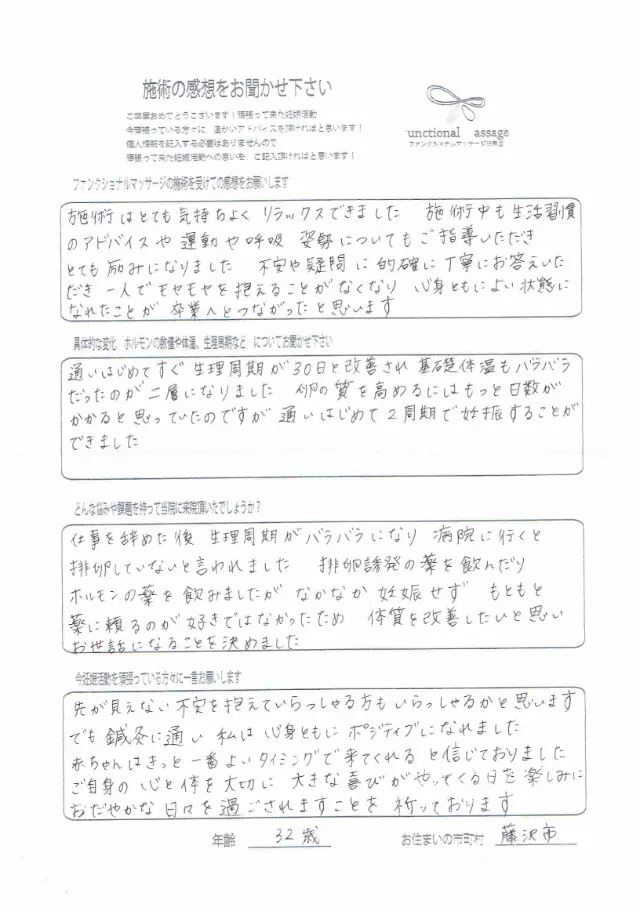 施術の感想をお聞かせ下さい
ご卒業おめでとうございます！頑張って来た妊娠活動
今頑張っている方々に、温かいアドバイスを頂ければと思います！
個人情報を記入する必要はありませんので
頑張って来た妊娠活動への思いを、ご記入頂ければと思います！
unctional assage
ファンクショナルマッサージ治療室
ファンクショナルマッサージの施術を受けての感想をお願いします
施術はとても気持ちよく リラックスできました 施術中も生活習慣
のアドバイスや運動や呼吸 姿勢についてもご指導いただき
とても励みになりました 不安や疑問に的確に丁寧にお答えいた
だき 一人でモヤモヤを抱えることがなくなり 心身ともによい状態に
なれたことが 卒業へとつながったと思います
具体的な変化 ホルモンの数値や体温、生理周期など についてお聞かせ下さい
通いはじめてすぐ生理周期が30日と改善され 基礎体温もバラバラ
だったのが二層になりました 卵の質を高めるにはもっと日数が
かかると思っていたのですが 通いはじめて2周期で妊娠することが
できました
どんな悩みや課題を持って当院に来院頂いたでしょうか？
仕事を辞めた後 生理周期がバラバラになり 病院に行くと
排卵していないと言われました 排卵誘発の薬を飲んだり
ホルモンの薬を飲みましたが なかなか妊娠せず もともと
薬に頼るのが好きではなかったため 体質を改善したいと思い
お世話になることを決めました
今妊娠活動を頑張っている方々に一言お願いします
先が見えない不安を抱えていらっしゃる方もいらっしゃるかと思います
でも鍼灸に通い 私は心身ともにポジティブになれました
赤ちゃんはきっと一番よいタイミングで来てくれると信じておりました
ご自身の心と体を大切に 大きな喜びがやってくる日を楽しみに
おだやかな日々を過ごされますことを祈っております
年齢 32歳 お住まいの市町村 藤沢市